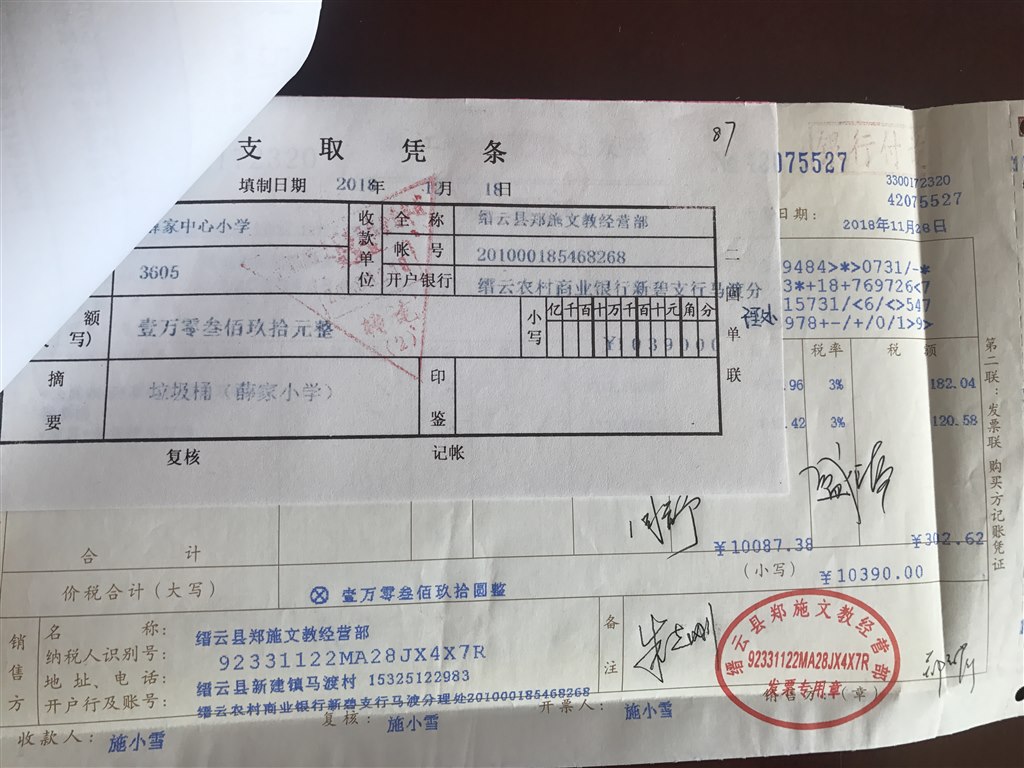 87
支取凭条
填制日期 2018年 12月 18日
薛家中心小学
收款单位
全称
缙云县郑施文教经营部
3605
帐号
201000185468268
开户银行
缙云农村商业银行新碧支行马渡分
额
写)
壹万零叁佰玖拾元整
小写
亿千百十万千百十元角分
¥1039000
摘要
垃圾桶（薛家小学）
印鉴
复核
记帐
二四单联
银行付
42075527
3300172320
42075527
日期：
2018年11月28日
9484>*>0731/-*
3*+18+769726<7
15731/<6/<>547
978+-/+/0/1>9>
税率
税额
.96 3% 182.04
.42 3% 120.58
第二联：发票联 购买方记账凭证
合计
¥10087.38
¥302.62
价税合计（大写）
ⓧ 壹万零叁佰玖拾圆整
(小写)
¥10390.00
销售方
名称：
缙云县郑施文教经营部
纳税人识别号：
92331122MA28JX4X7R
地址、电话：
缙云县新建镇马渡村 15325122983
开户行及账号：
缙云农村商业银行新碧支行马渡分理处201000185468268
备注
缙云县郑施文教经营部
92331122MA28JX4X7R
发票专用章
销售方（章）
收款人：
施小雪
复核：
施小雪
开票人：
施小雪